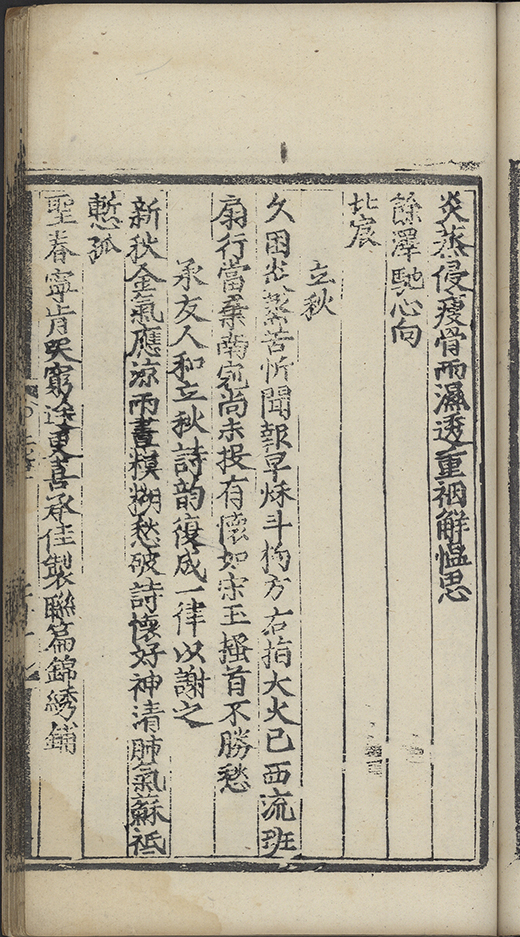 炎蒸侵瘦骨雨濕透重裀解慍思
餘澤馳心向
北宸
立秋
久困炎蒸苦忻聞報早秌斗杓方右指大火已西流班
扇行當棄南冠尚未投有懷如宋玉搔首不勝愁
承友人和立秋詩韵復成一律以謝之
新秋金氣應凉雨晝模糊愁破詩懷好神清肺氣蘇祗
慙孤
聖眷寧肯哭窮途更喜承佳製聯篇錦綉鋪